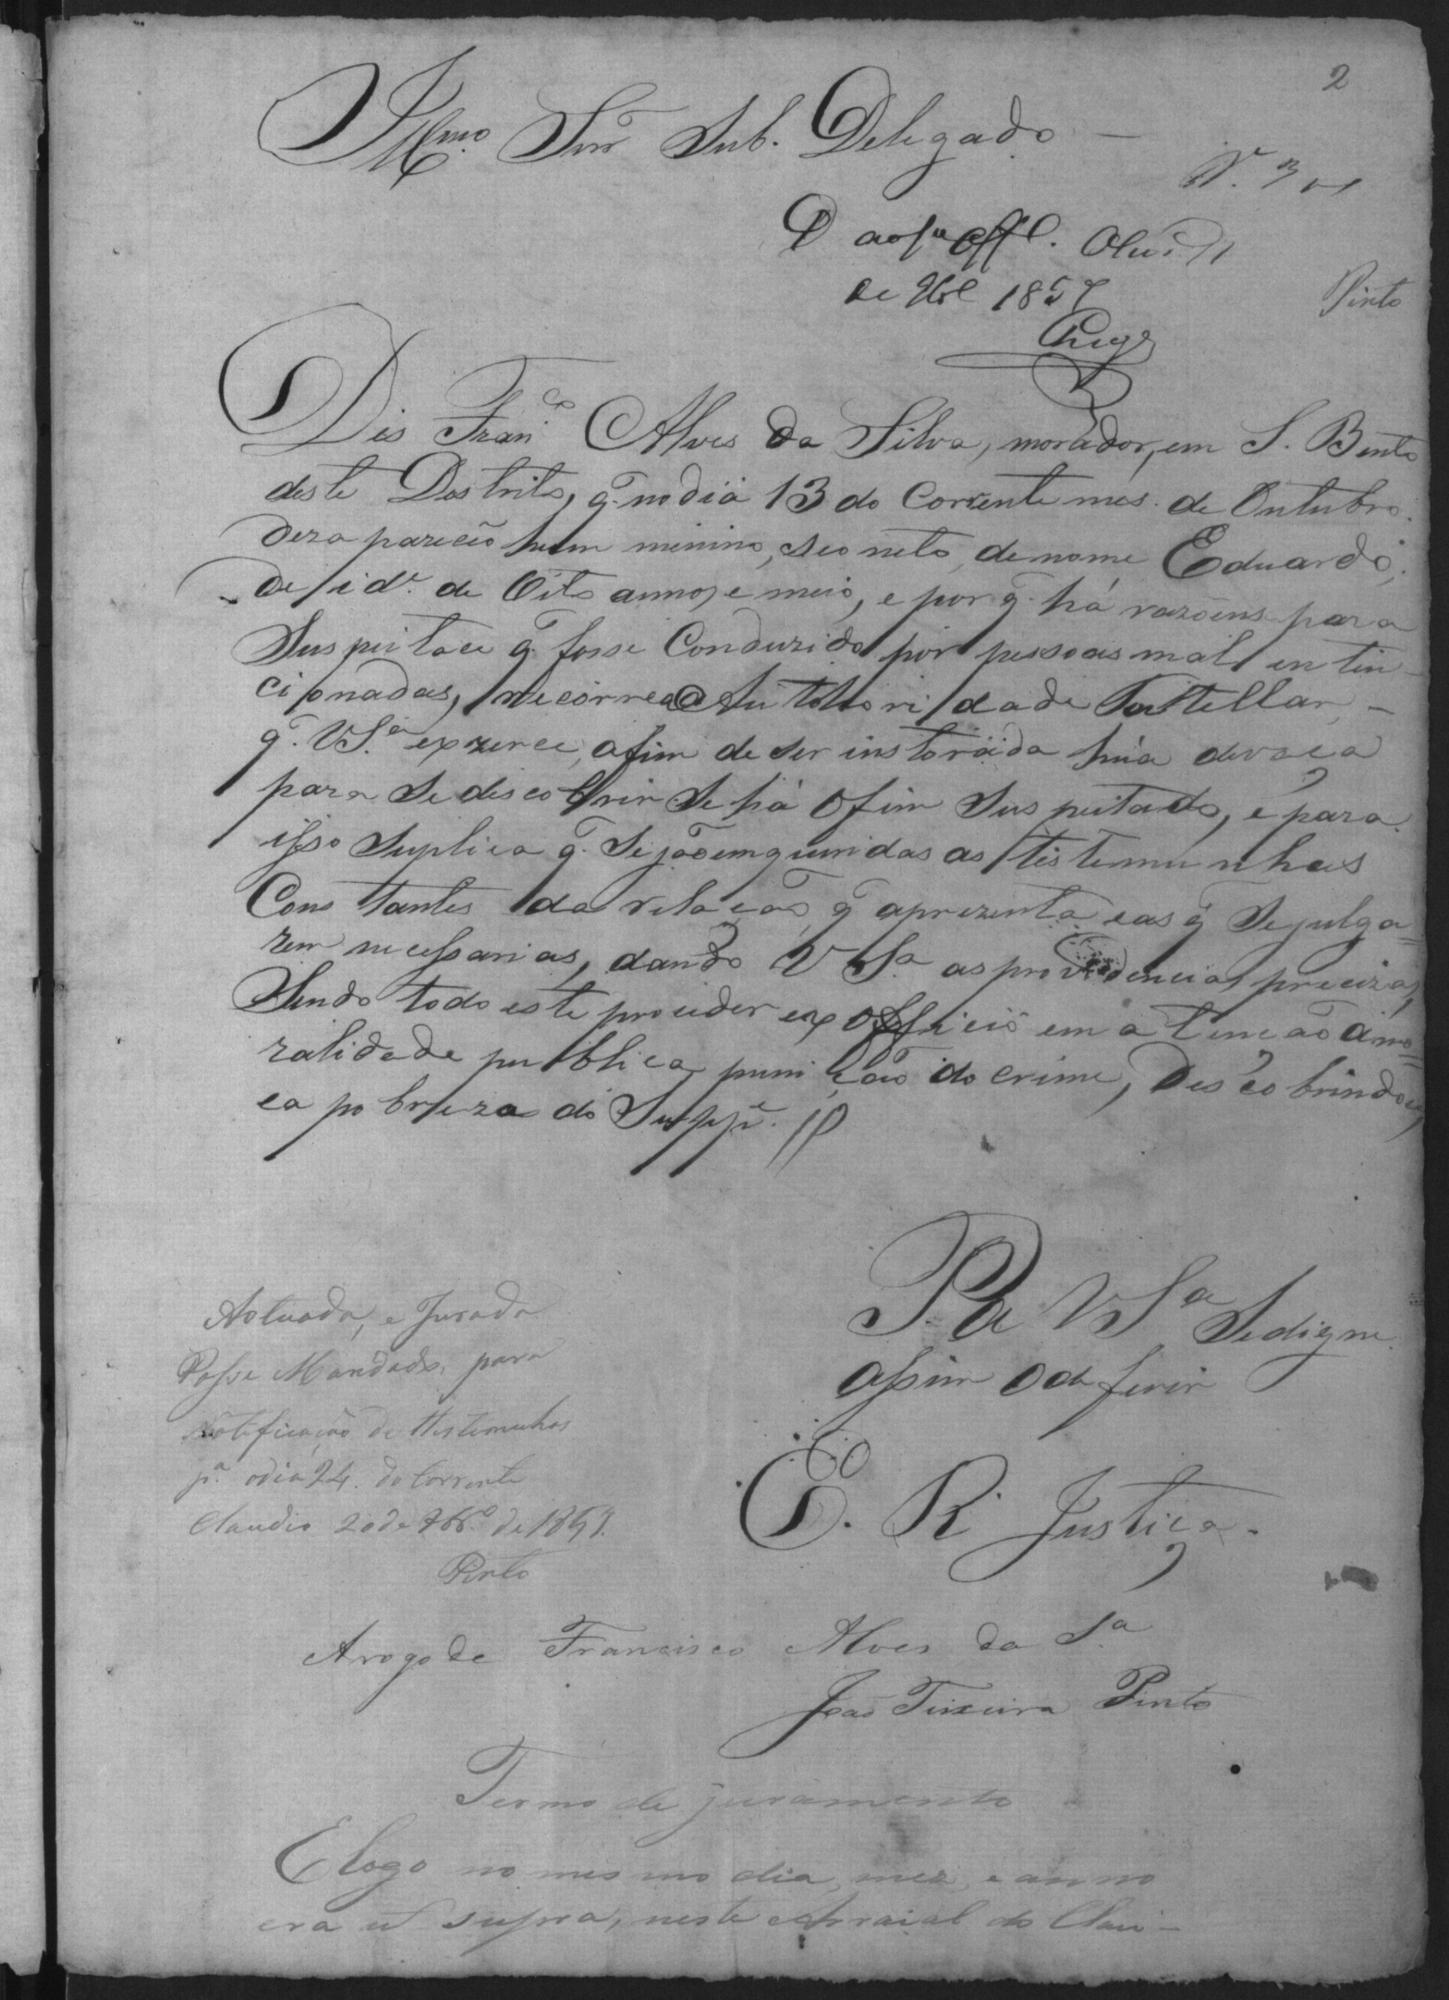 2
Illmo. Snr Sub. Delegado
Nº. 3
D ao offl.
de 1857
Pinto
Dis Franco. Alves da Silva, morador, em S. Bento
deste Destrito, q. no dia 13 do Corrente mes. de Outubro.
deza pareceo hum minino, seo neto, de nome Eduardo,
de id.e de Oito annos e meio, e por q. há razoens para
Suspeitace q. fosse Conduzido por pessoas mal entin-
cionadas, recorre a Authoridade
q. VS.a exzerce, afim de ser instoraida hũa devaça
para se discobrir se há o fim Suspeitado, e para.
isso Suplica q. Sejão emqueridas as tistemunhas
Constantes da relação q aprezenta e as q Se julga=
rem necessarias, dando V Sa as providencias precizas,
Sendo todo este proceder ex officio em atencão á mo=
ralidade publica, punição do crime, Descobrindoce,
e a pobreza do Suppe.
P. a VSa Sedigne
assim o deferir
E. R. Justiça.
Actuada, e Jurada
Passe Mandado, para
Notificação de testemunhas
pa. o dia 24. do Corrente
Claudio 20 de 8bro. de 1857.
Pinto
Arogo de Francisco Alves da Sa
João Teixeira Pinto
Termo de juramento
E logo no mesmo dia, mez, e anno
era ut supra, neste Arraial do Clau-